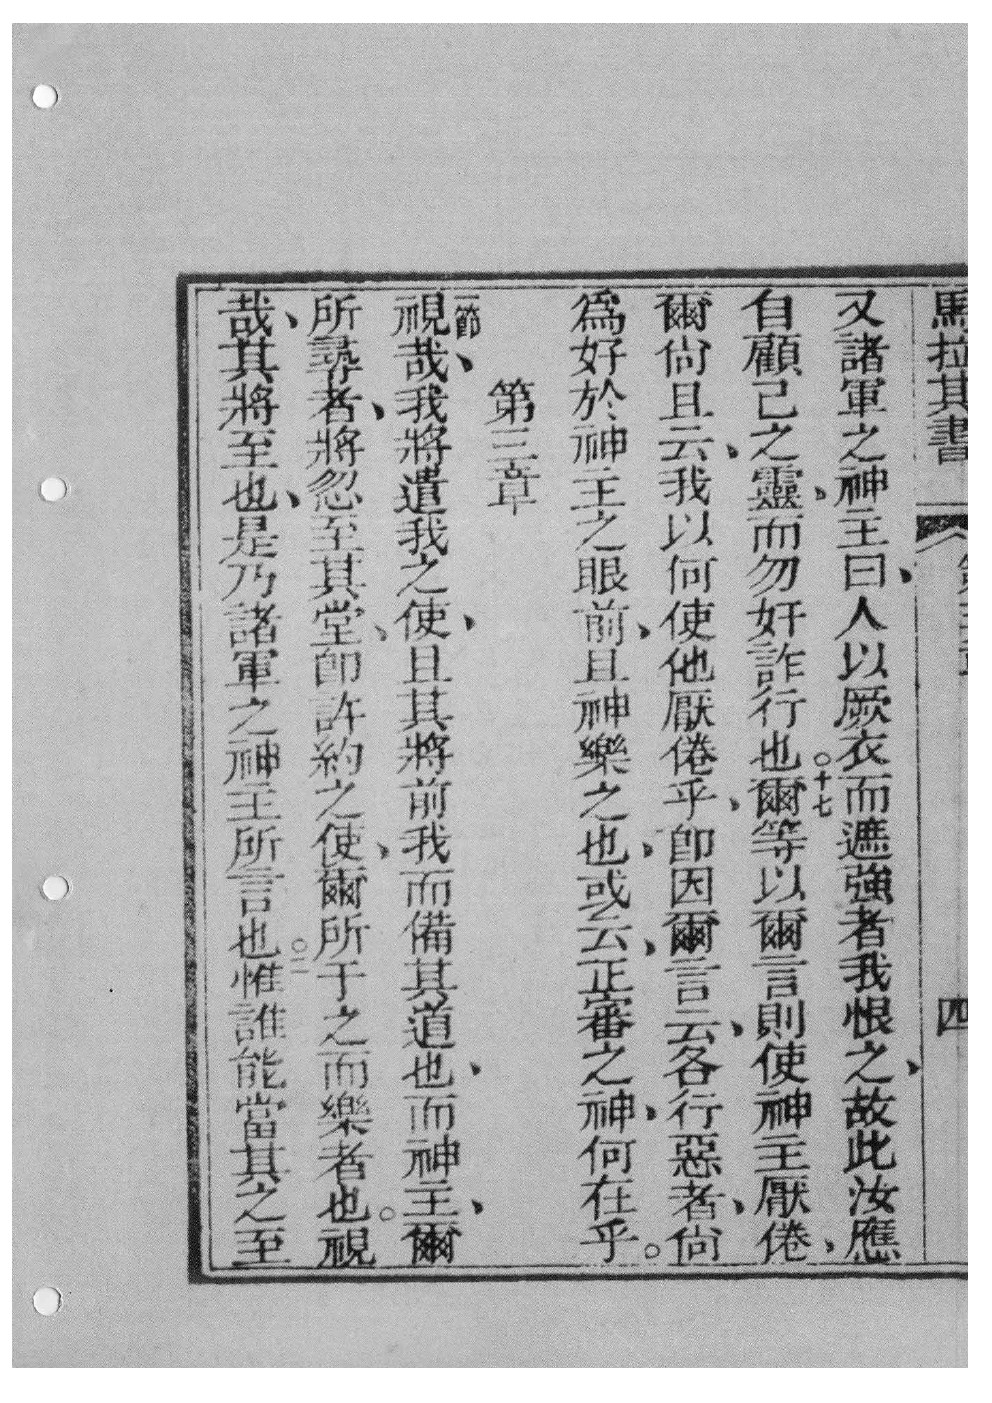 馬拉其書 四
又諸軍之神主曰、人以厥衣而遮強者我恨之、故此汝應
自顧己之靈、而勿奸詐行也。十七爾等以爾言則使神主厭倦、
爾尙且云、我以何使他厭倦乎、卽因爾言云、各行惡者、尙
爲好於神主之眼前、且神樂之也、或云、正審之神、何在乎。
第三章
一節視哉、我將遣我之使、且其將前我而備其道也、而神主、爾
所尋者、將忽至其堂、卽許約之使、爾所于之而樂者也。視
哉、其將至也、是乃諸軍之神主所言也。二惟誰能當其之至